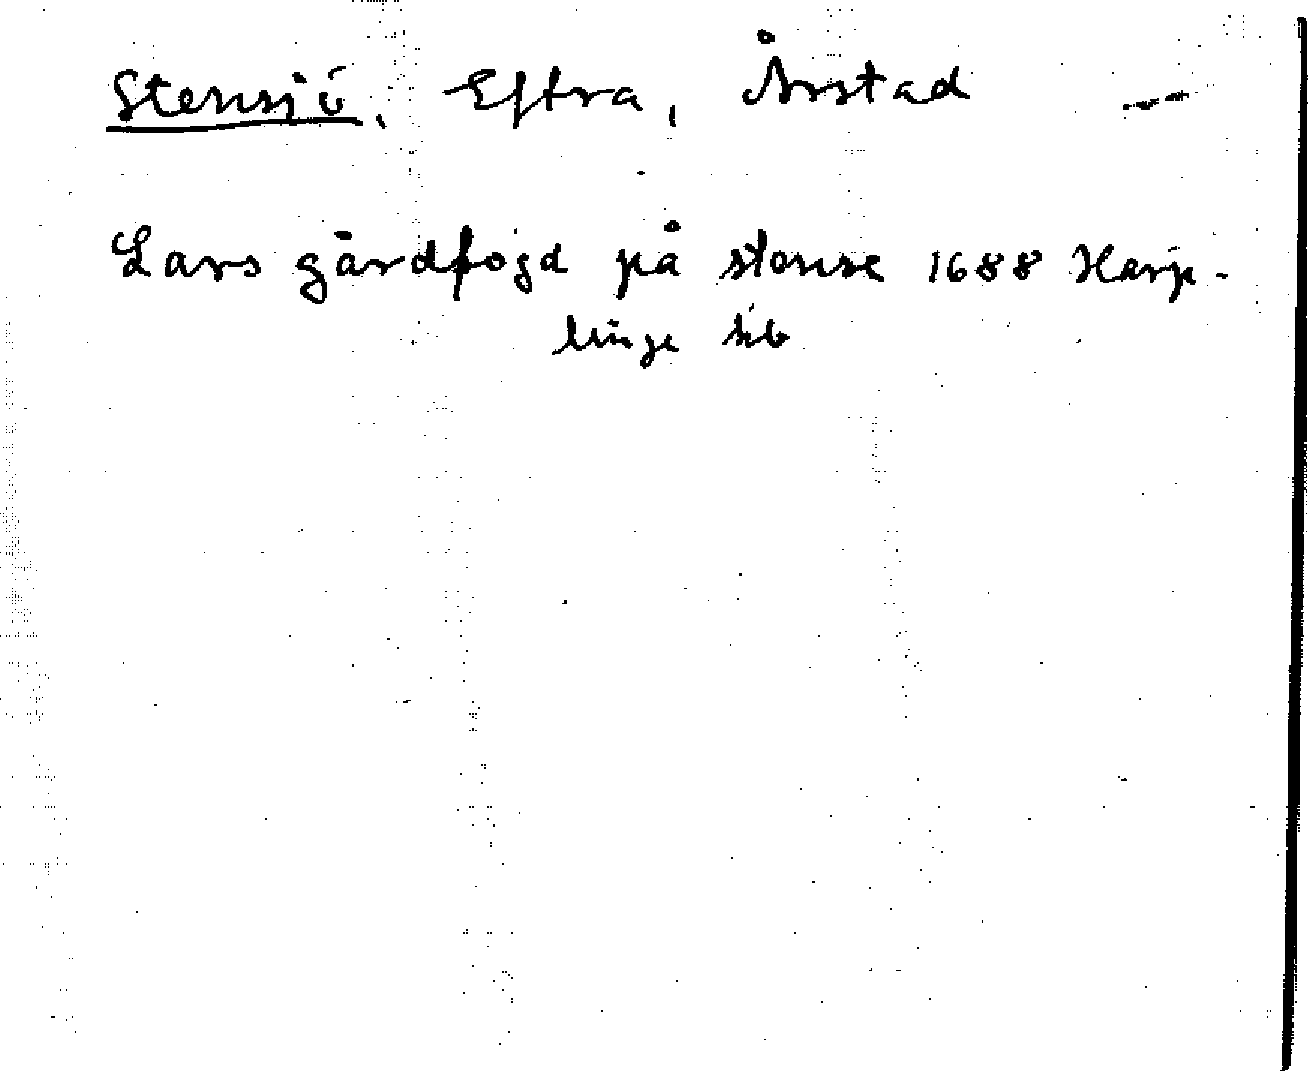 Stensjö, Eftra, Årstad —
Lars gårdfogd på stense 1688 Harp-
linge kb